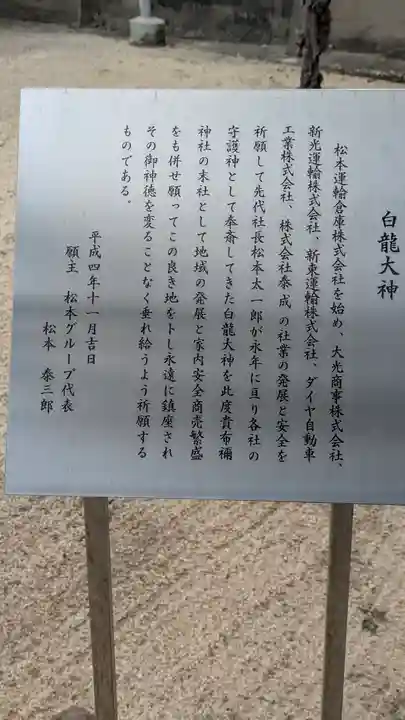 白龍大神
松本運輸倉庫株式会社を始め、大光商事株式会社、
新光運輸株式会社、新東運輸株式会社、ダイヤ自動車
工業株式会社、株式会社泰成の社業の発展と安全を
祈願して先代社長松本太一郎が永年に亘り各社の
守護神として奉斎してきた白龍大神を此度貴布禰
神社の末社として地域の発展と家内安全商売繁盛
をも併せ願ってこの良き地を卜し永遠に鎮座され
その御神徳を変ることなく垂れ給うよう祈願する
ものである。
平成四年十一月吉日
願主 松本グループ代表
松本 泰三郎